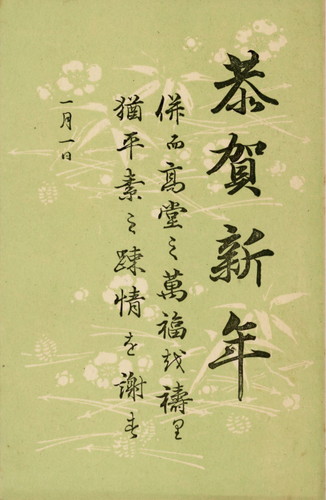 恭賀新年
併而高堂之萬福越禱里
猶平素之疎情を謝す
一月一日